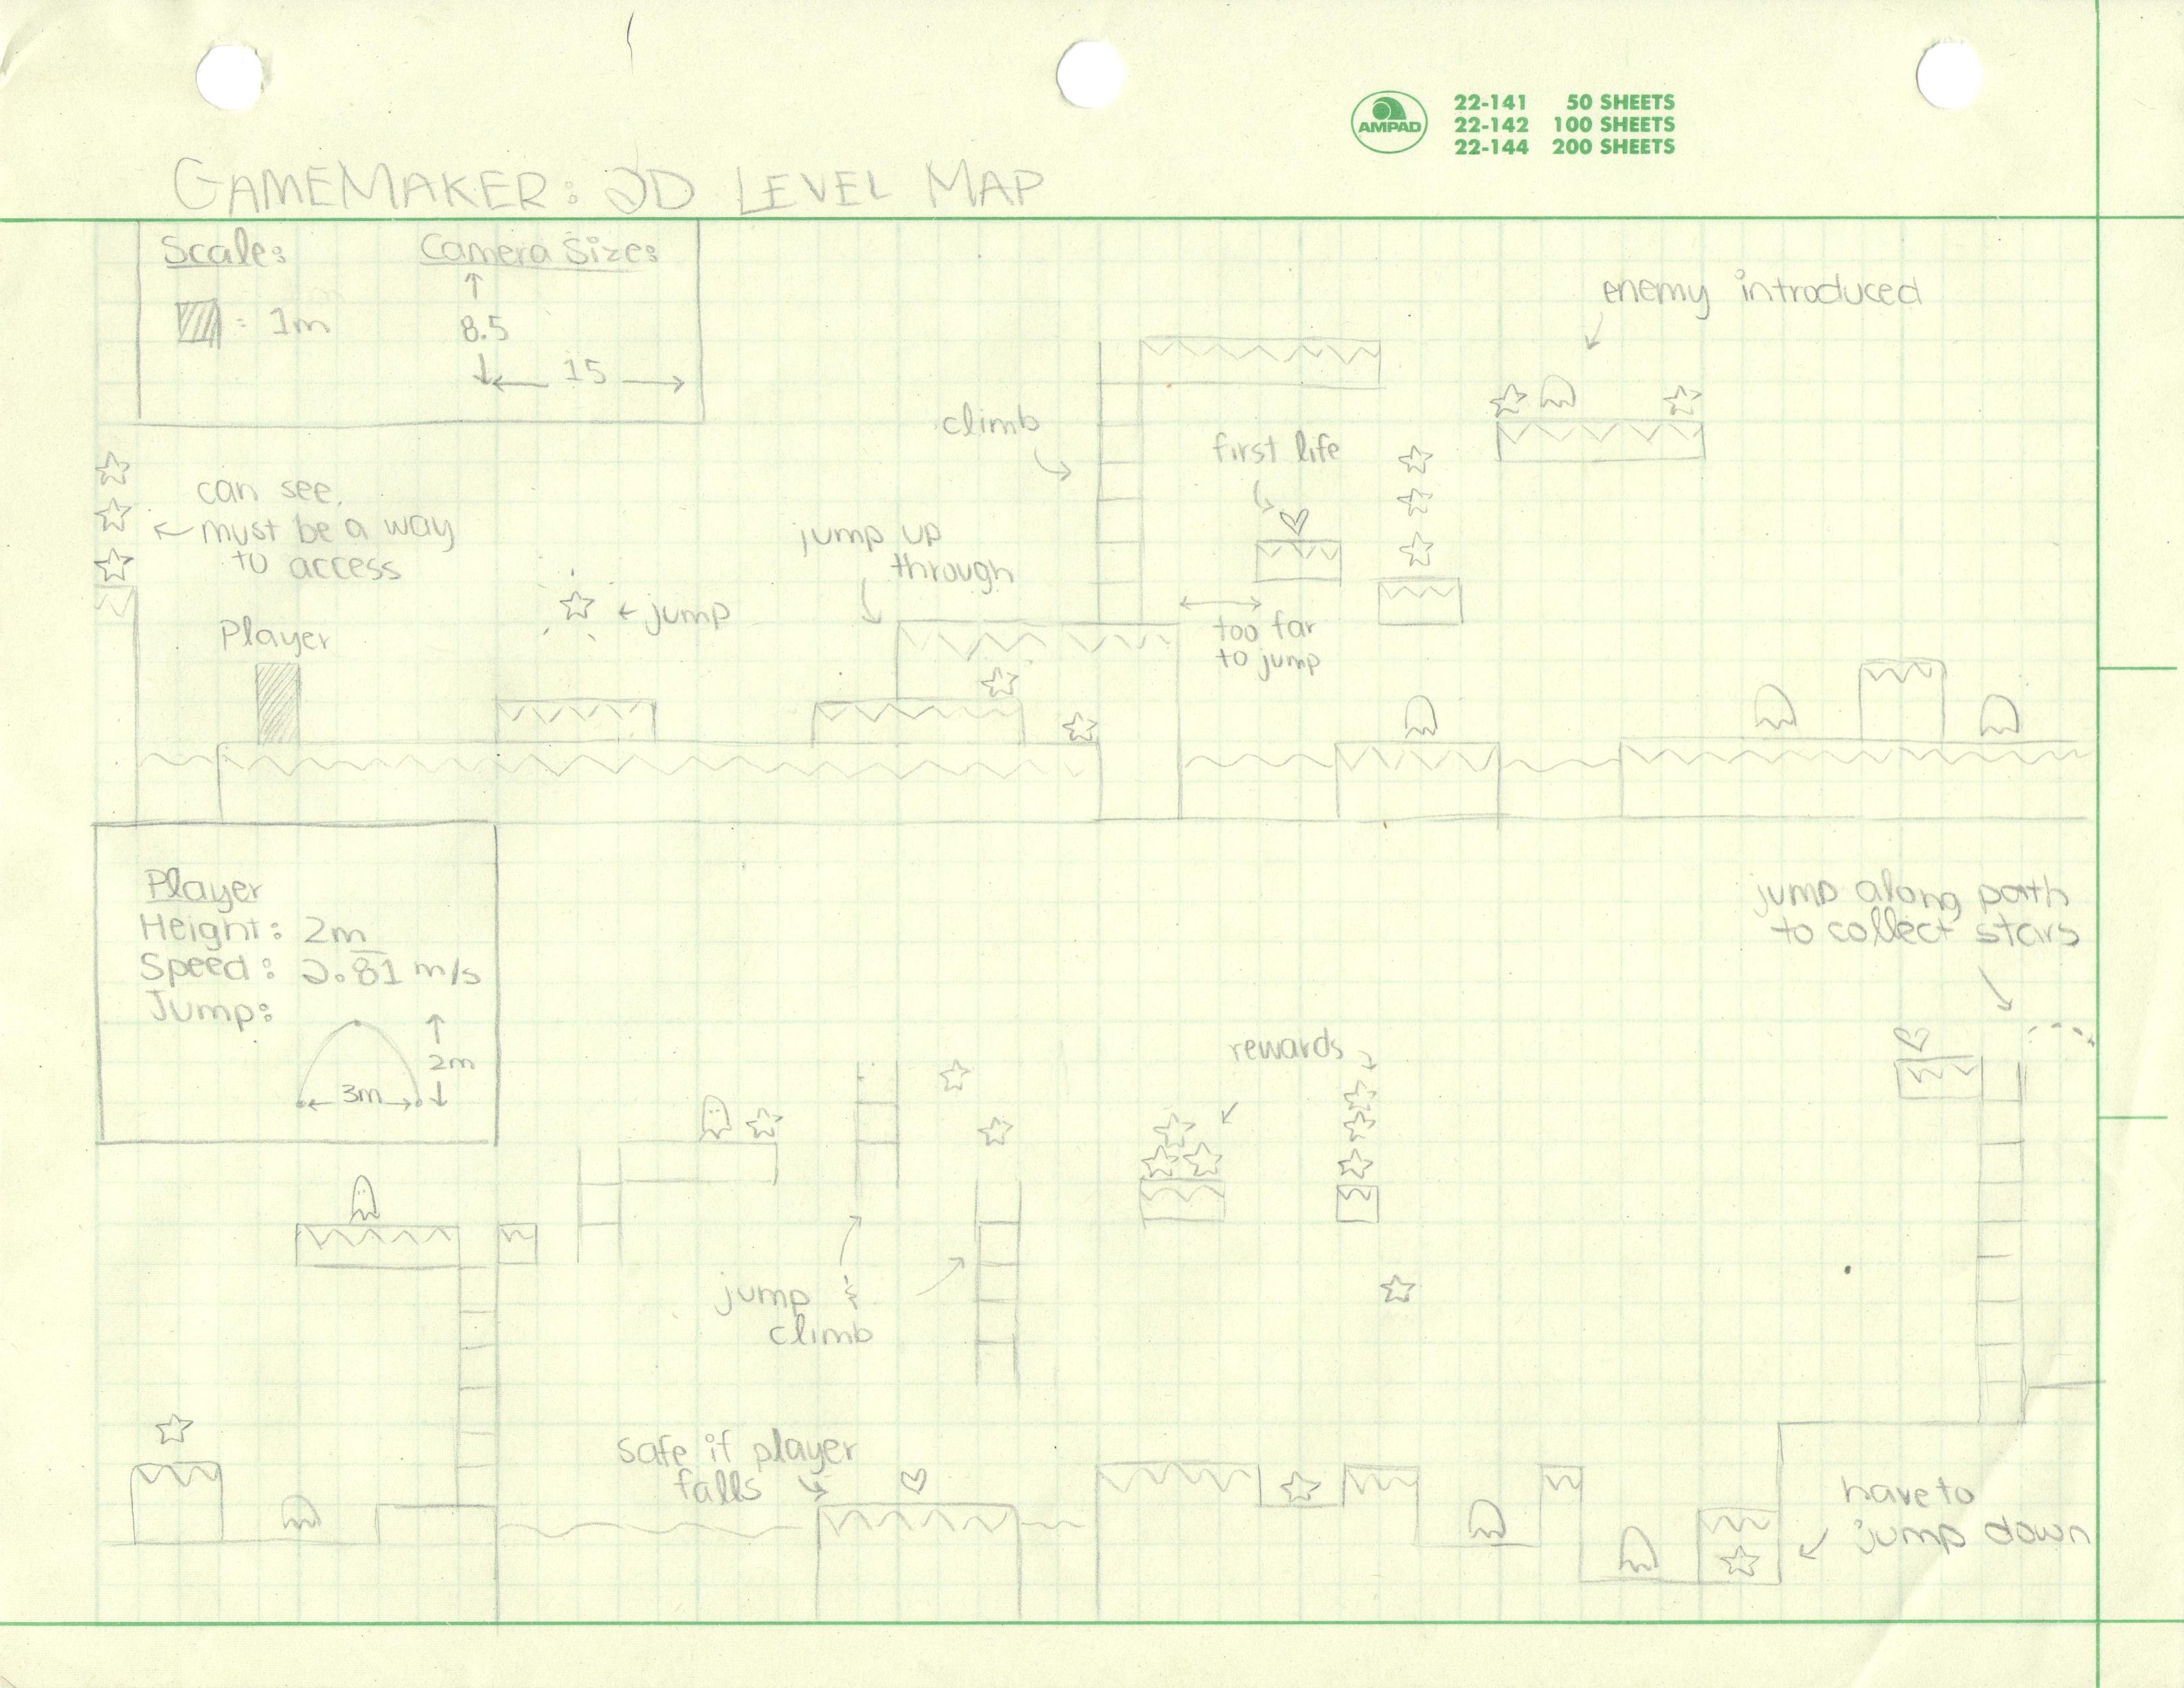 22-141 50 SHEETS
AMPAD 22-142 100 SHEETS
22-144 200 SHEETS
GAMEMAKER: 2D LEVEL MAP
Scale: Camera Size:
= 1m
8.5
15
enemy introduced
climb
first life
can see.
must be a way
to access
jump up
through
jump
Player
too far
to jump
Player
Height: 2m
Speed: 2.81 m/s
Jump:
2m
3m
jump along path
to collect stars
rewards
jump &
climb
safe if player
falls
have to
jump down